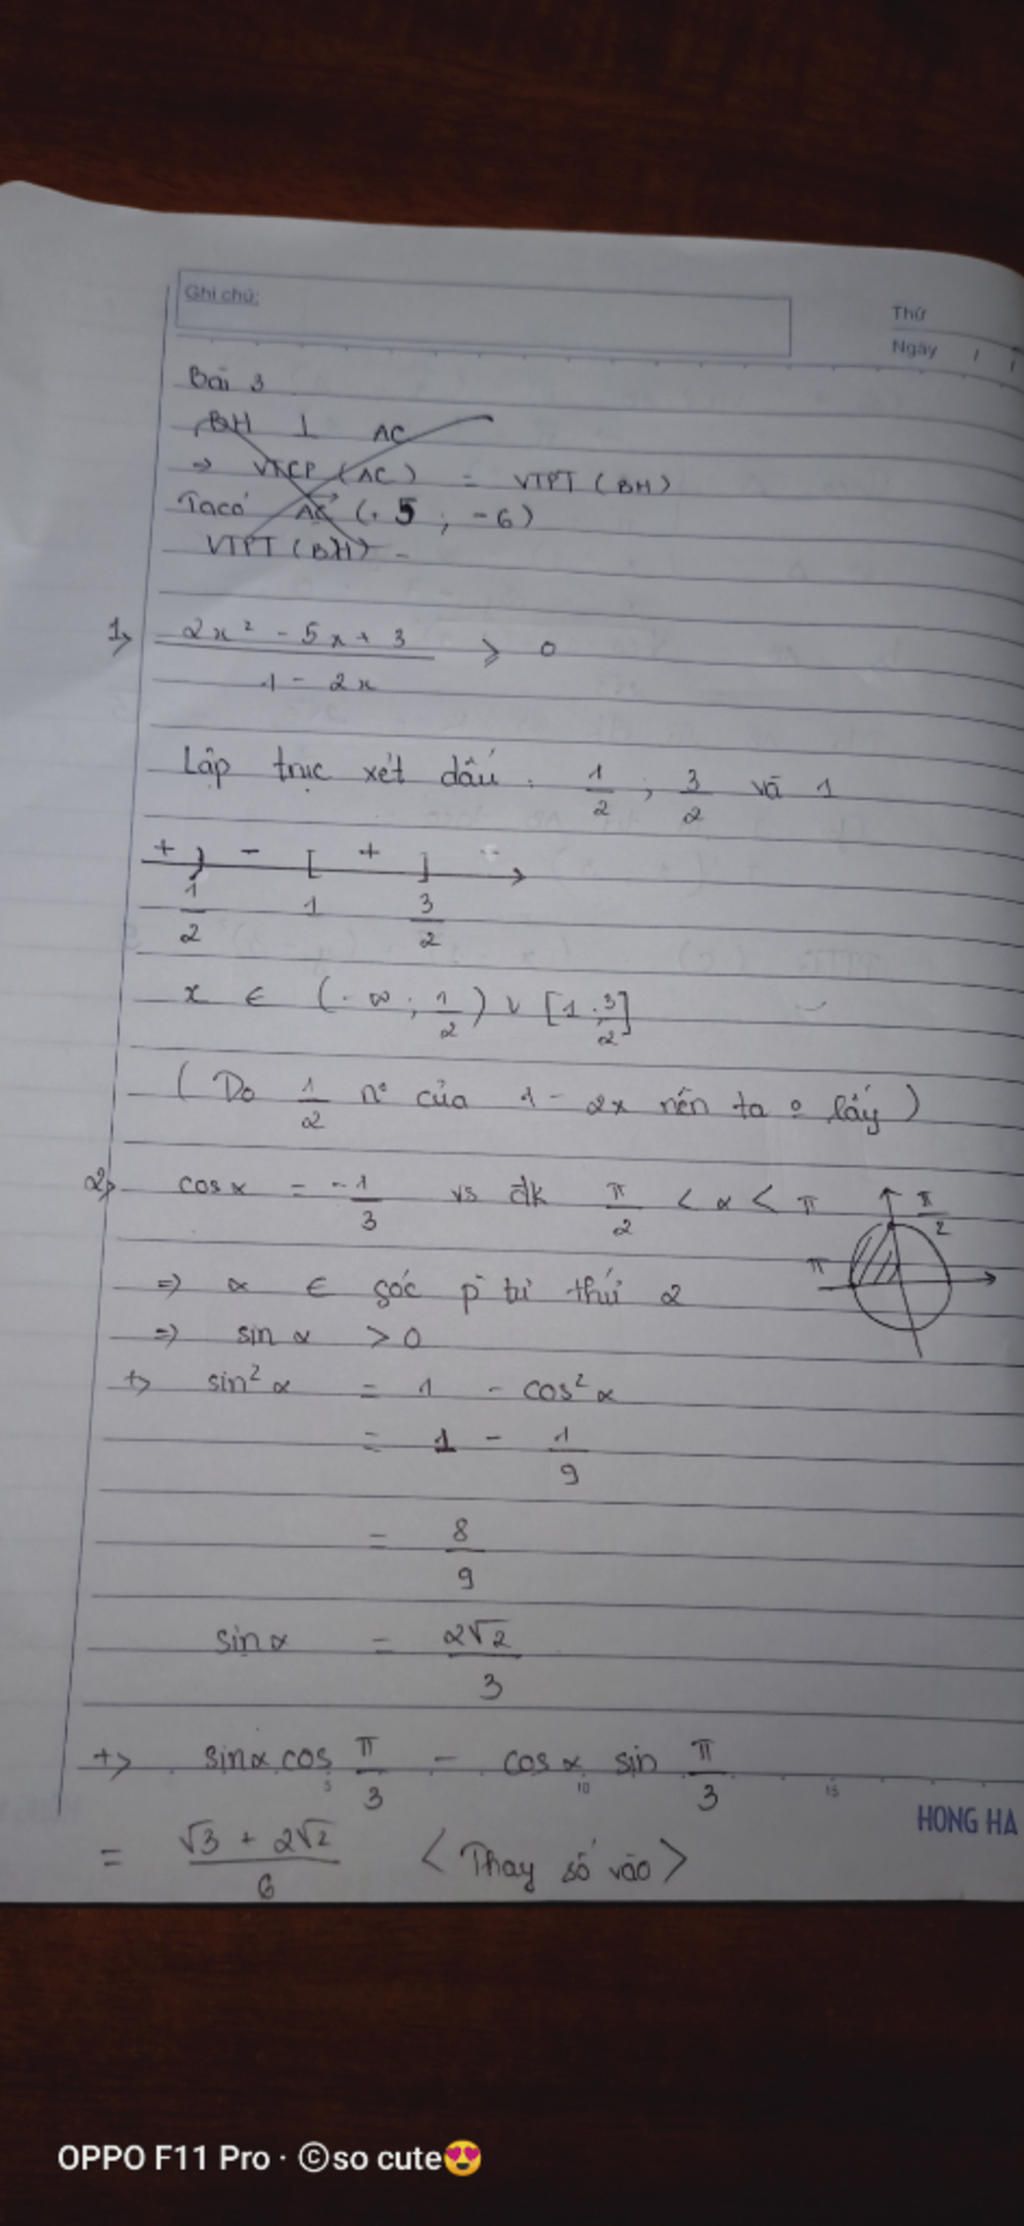 Ghi chú:
Thứ
Ngày / /
Bài 3
BH ⊥ AC
=> VTCP (AC) = VTPT (BH)
Ta có AC (. 5 ; -6)
VTPT (BH) =
1> (2x² - 5x + 3)/(1 - 2x) ⩾ 0
Lập trục xét dấu : 1/2 ; 3/2 và 1
+ ) - [ + ] -
1/2 1 3/2
x ∈ (-∞ ; 1/2) ∪ [1 ; 3/2]
(Do 1/2 n° của 1 - 2x nên ta o lấy)
2> cos α = -1/3 vs đk π/2 < α < π
π/2
π
=> α ∈ góc p tư thứ 2
=> sin α > 0
+> sin² α = 1 - cos² α
= 1 - 1/9
= 8/9
sin α = 2√2/3
+> sin α cos π/3 - cos α sin π/3
5 10 15
HONG HA
= (√3 + 2√2)/6 < Thay số vào >
OPPO F11 Pro · ©so cute😍